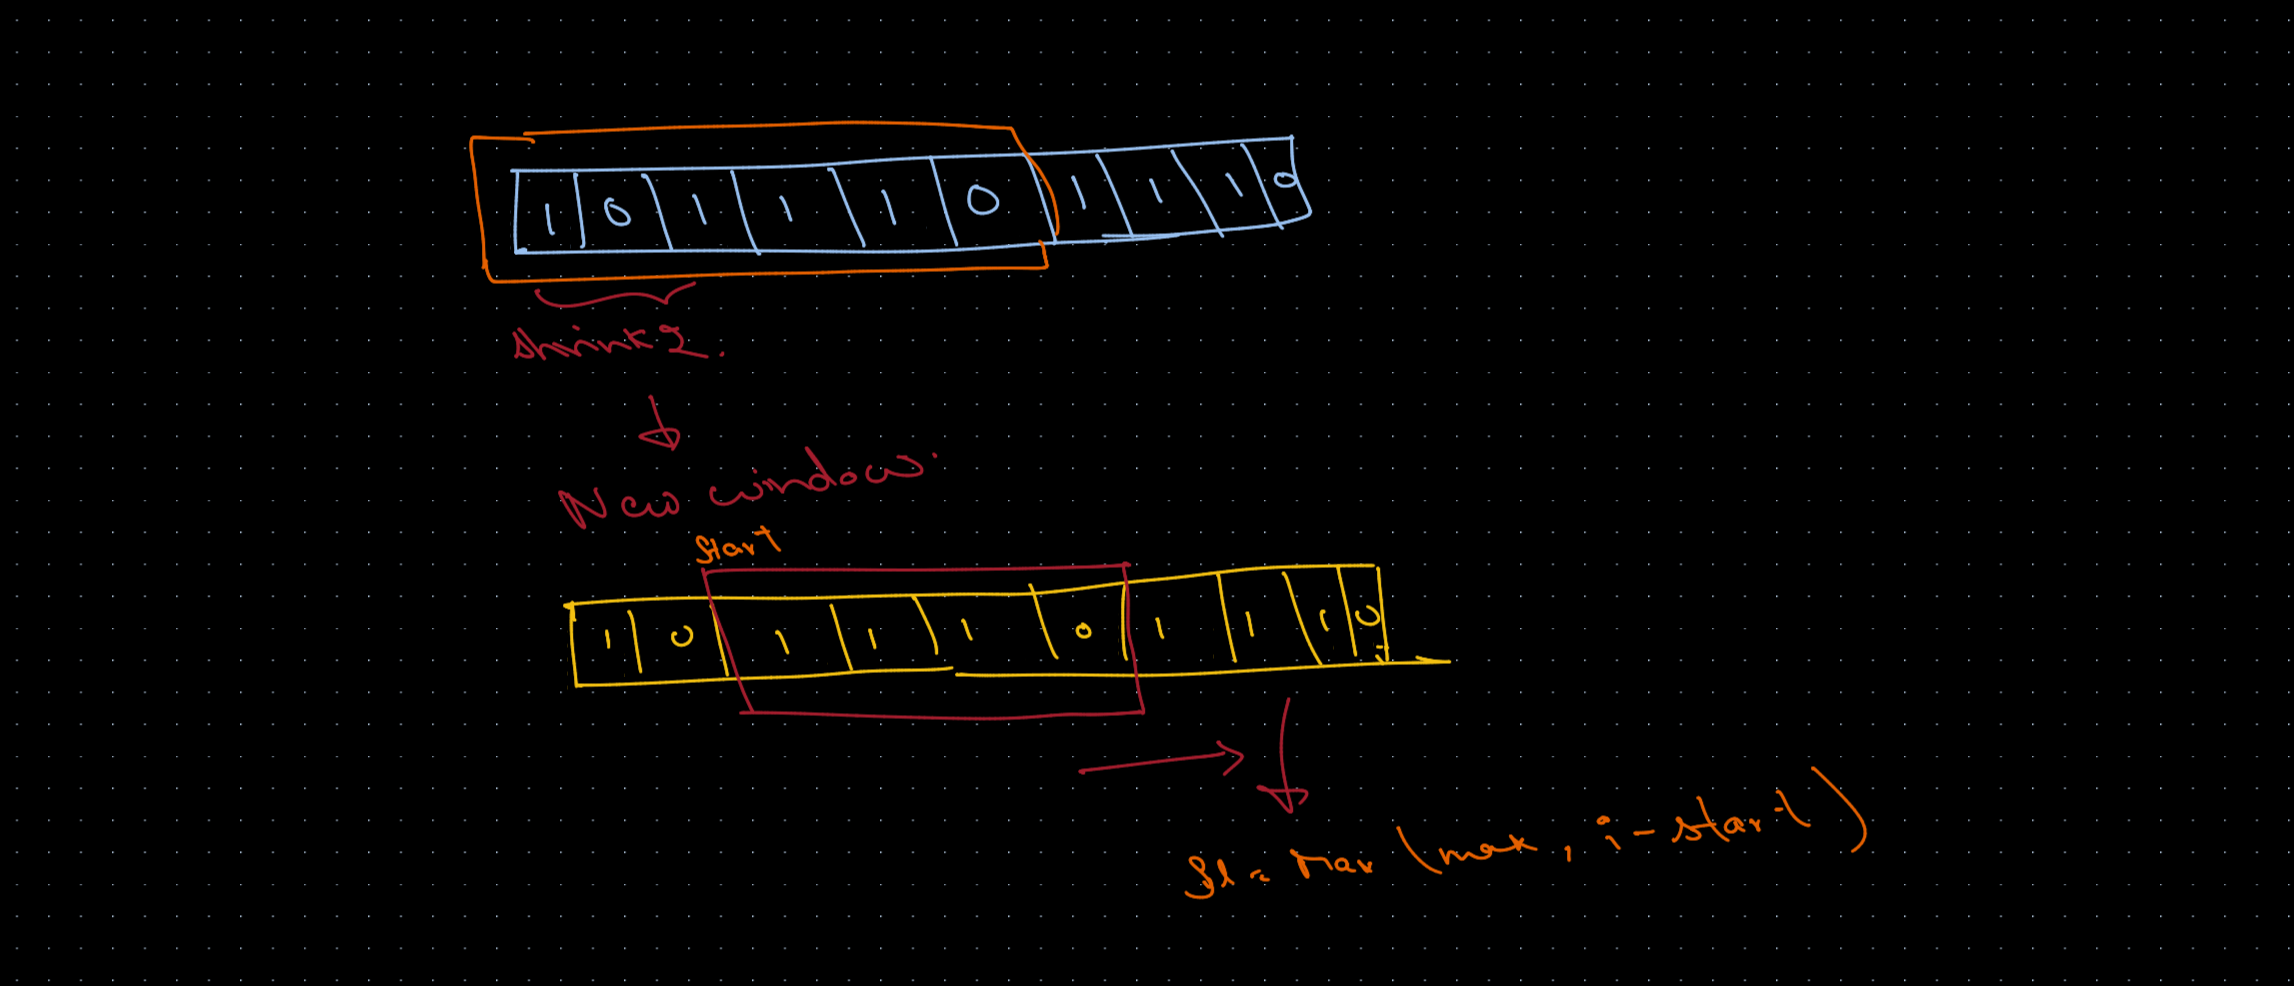 1 0 1 1 1 0 1 1 1 0
shrink 2.
New window.
Start
1 0 1 1 1 0 1 1 1 0
i
= Max (max, i - start)